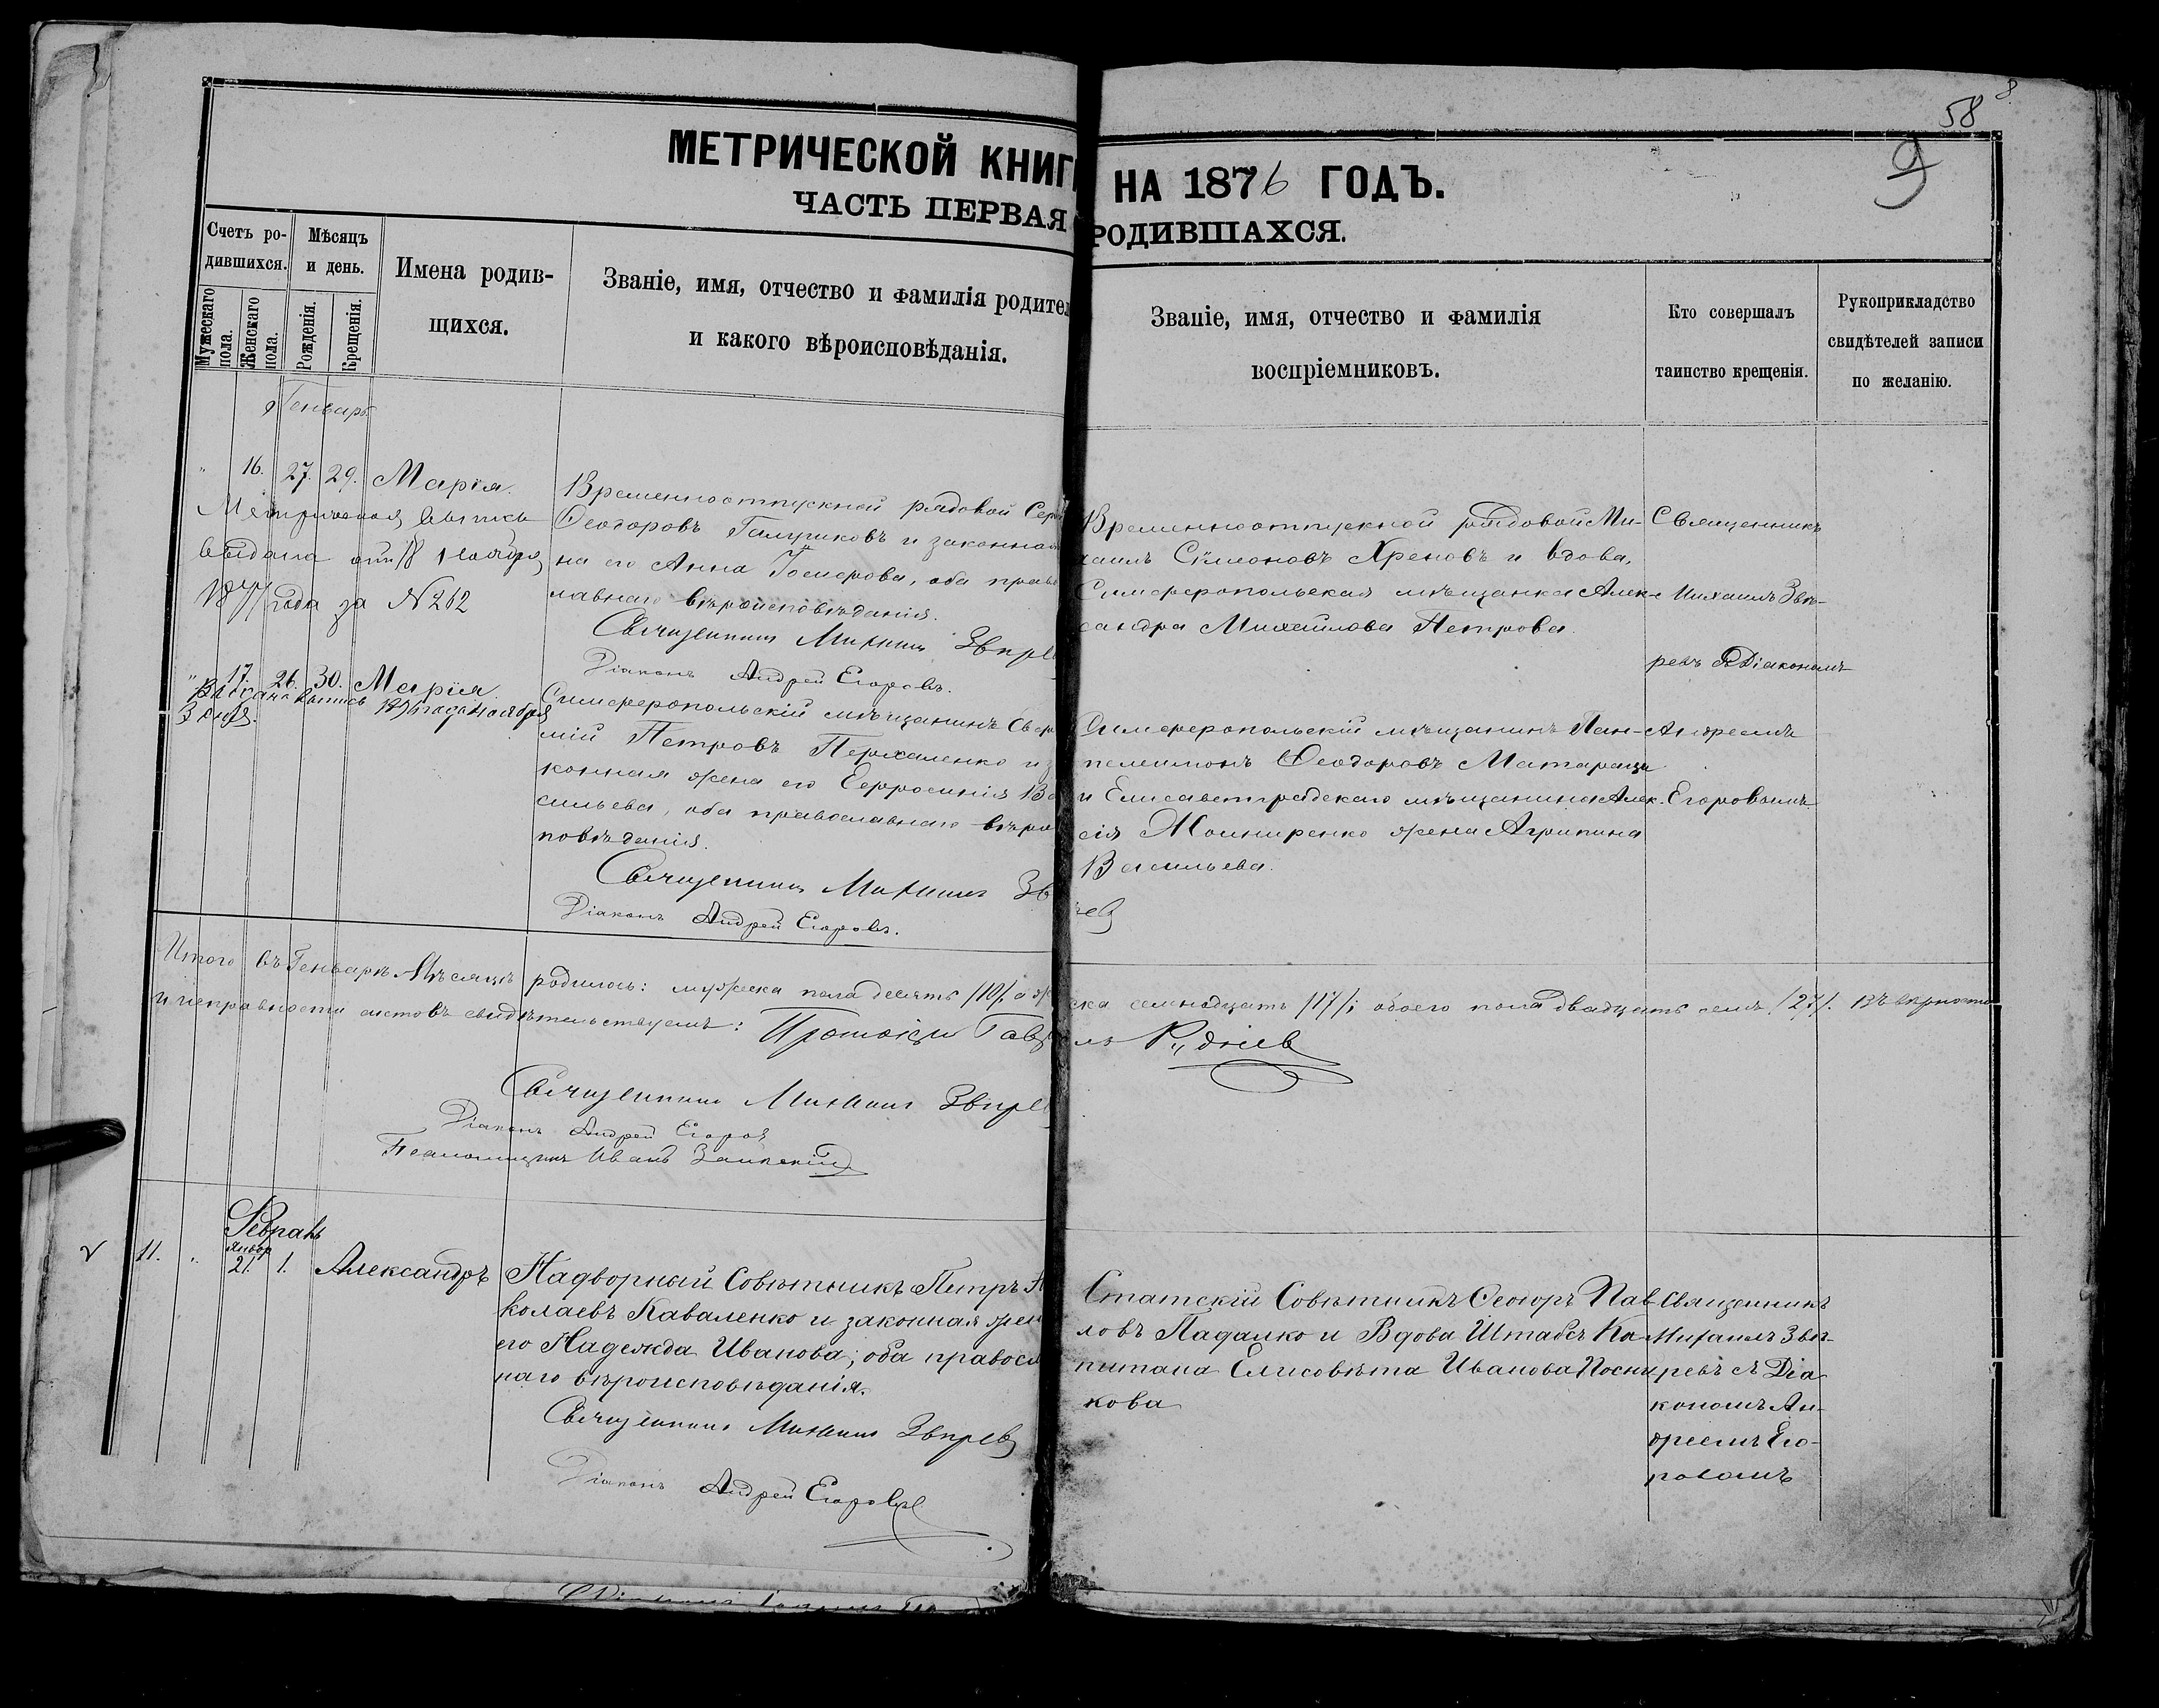 58
8
9
МЕТРИЧЕСКОЙ КНИГ НА 1876 ГОДЪ.
ЧАСТЬ ПЕРВАЯ РОДИВШАХСЯ.
Счетъ ро-
дившихся.
Мужескаго пола.
Женскаго пола.
Мѣсяцъ
и день.
Рожденія.
Крещенія.
Имена родив-
щихся.
Званіе, имя, отчество и фамилія родител
и какого вѣроисповѣданія.
Званіе, имя, отчество и фамилія
воспріемниковъ.
Кто совершалъ
таинство крещенія.
Рукоприкладство
свидѣтелей записи
по желанію.
Генварь
16. 27. 29. Марія.
Временноотпускной рядовой Сер
Ѳеодоровъ и законная
на его Анна, оба право
лавнаго вѣроисповѣданія.
Священникъ Михаилъ Звѣре
Діаконъ Андрей Егоровъ.
Метрическая выпись
выдана
года за N 262
Временноотпускной рядовой Ми-
хаилъ Сѵмеоновъ Хреновъ и вдова,
Симферопольская мѣщанка Алек-
сандра Михайлова Петрова.
Священникъ
Михаилъ Звѣ-
ревъ съ Діакономъ
17. 26. 30. Марія
Выдана выпись 1896 года ноября
Симферопольскій мѣщанинъ
мій Петровъ и з
конная жена его Евфросинія Ва
сильева, оба православнаго вѣро
повѣданія.
Священникъ Михаилъ Зв
рев
Діаконъ Андрей Егоровъ.
Симферопольскій мѣщанинъ Пан-
телеимонъ Ѳеодоровъ
и Елисаветградскаго мѣщанина Алек-
сія жена Агрипина
Васильева.
Андреемъ
Егоровымъ
Итого въ Генварѣ мѣсяцѣ родилось: мужеска пола десять /10/, а же
ска семнадцать /17/; обоего пола двадцать семь /27/. Въ вѣрности
и исправности листовъ свидѣтельствуемъ: Протоіерей Гавр
лъ Рудневъ
Священникъ Михаилъ Звѣрев
Діаконъ Андрей Егоров
Псаломщикъ Иванъ
Февраль
11. Январ 21. 1. Александръ
Надворный Совѣтникъ Петръ Н
колаевъ Каваленко и законная жен
его Надежда Иванова; оба правосл
наго вѣроисповѣданія.
Священникъ Михаилъ Звѣревъ
Діаконъ Андрей Егоровъ
Статскій Совѣтникъ Ѳеодоръ Пав-
ловъ Падалко и Вдова Штабсъ Ка
питана Елисовѣта Иванова Посни
кова
Священникъ
Михаилъ Звѣ-
ревъ съ Діа
кономъ Ан-
дреемъ Его-
ровымъ